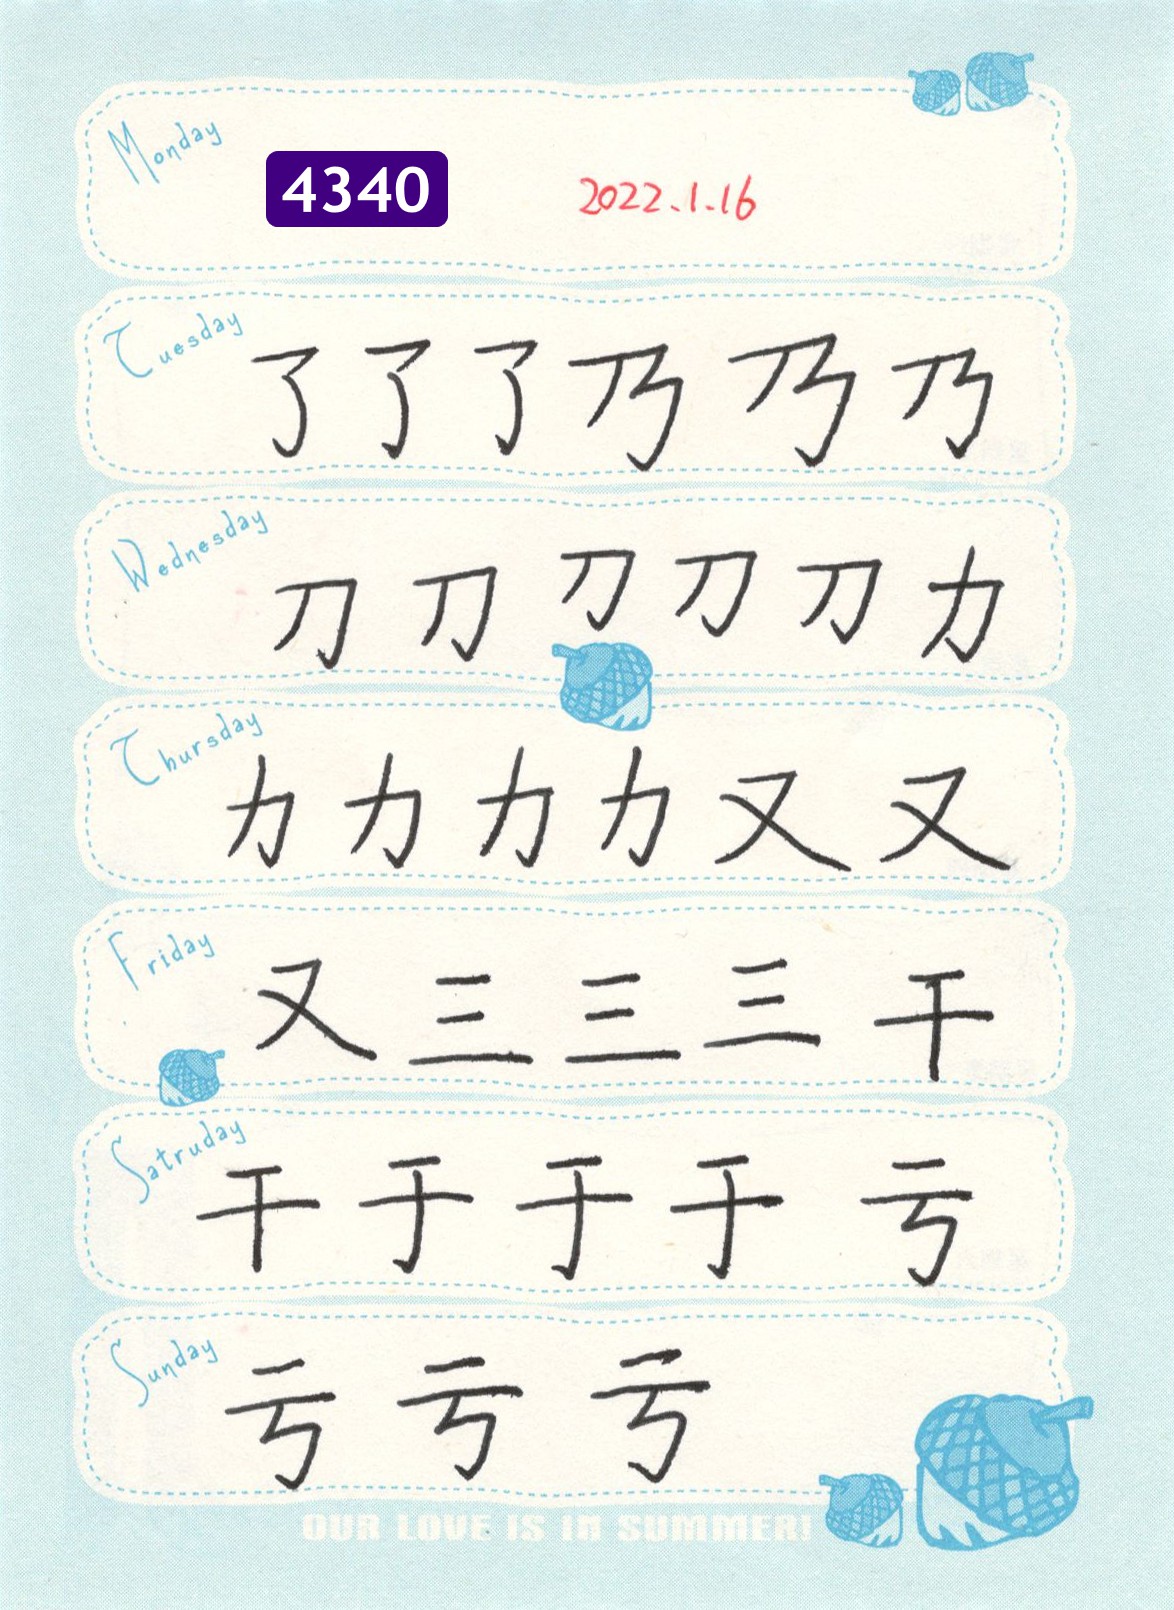 Monday
4340 2022.1.16
Tuesday
了了了乃乃乃
Wednesday
刀刀刀刀刀力
Thursday
力力力力又又
Friday
又三三三干
Satruday
干于于于亏
Sunday
亏亏亏
OUR LOVE IS IN SUMMER!